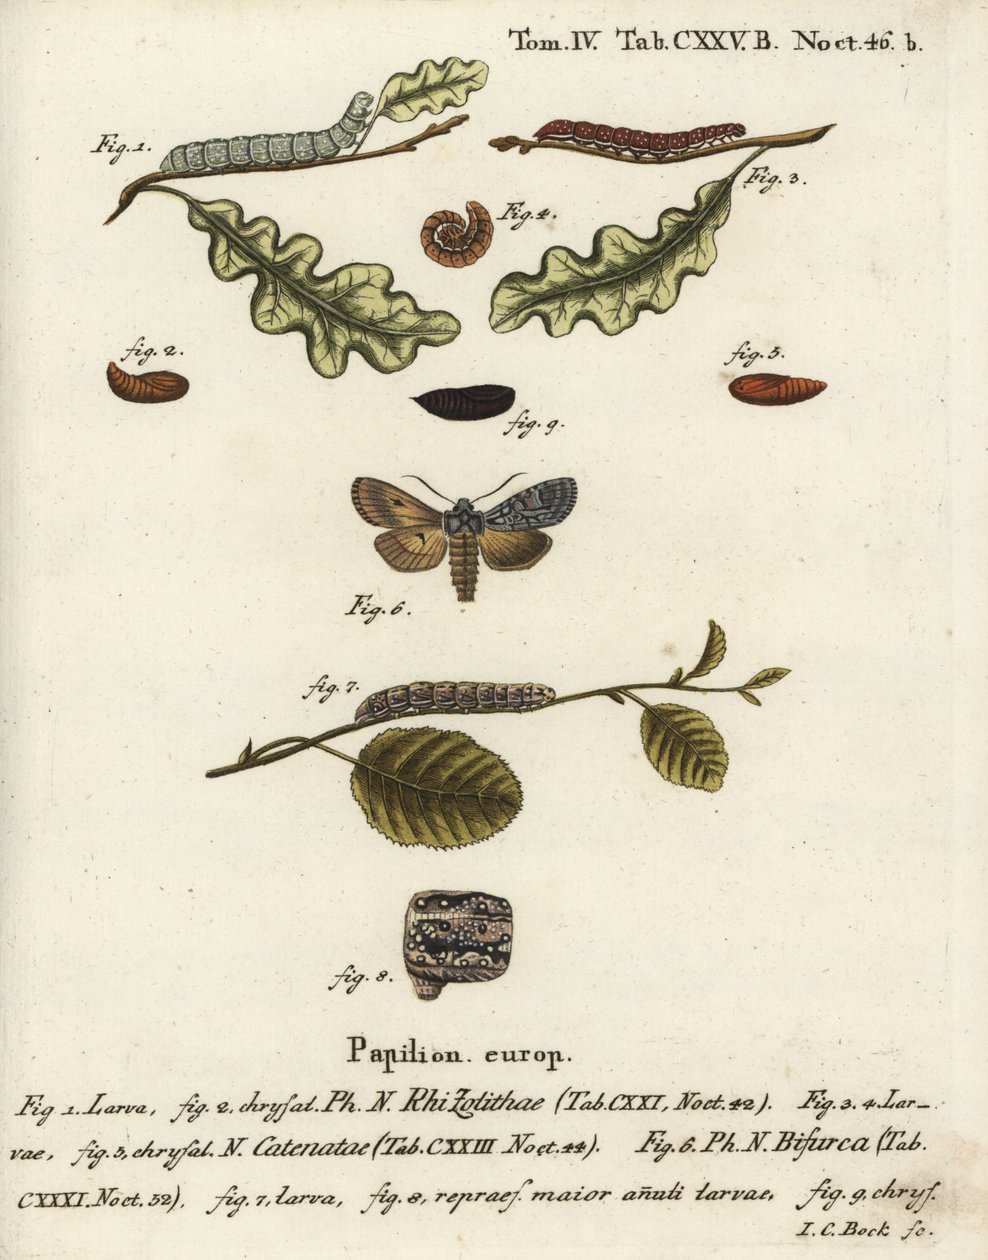 Tom. IV. Tab. CXXV. B. Noct. 46. b.
Fig. 1.
Fig. 3.
Fig. 4.
fig. 2.
fig. 5.
fig. 9.
Fig. 6.
fig. 7.
fig. 8.
Papilion. europ.
Fig 1. Larva, fig. 2, chryſal. Ph. N. Rhizolithae (Tab. CXXI, Noct. 42). Fig. 3. 4. Lar-
vae, fig. 5, chryſal. N. Catenatae (Tab. CXXIII Noct. 44). Fig. 6. Ph. N. Bifurca (Tab.
CXXXI. Noct. 52), fig. 7, larva, fig. 8, repraeſ. maior añuli larvae, fig. 9, chryſ.
I. C. Bock ſc.